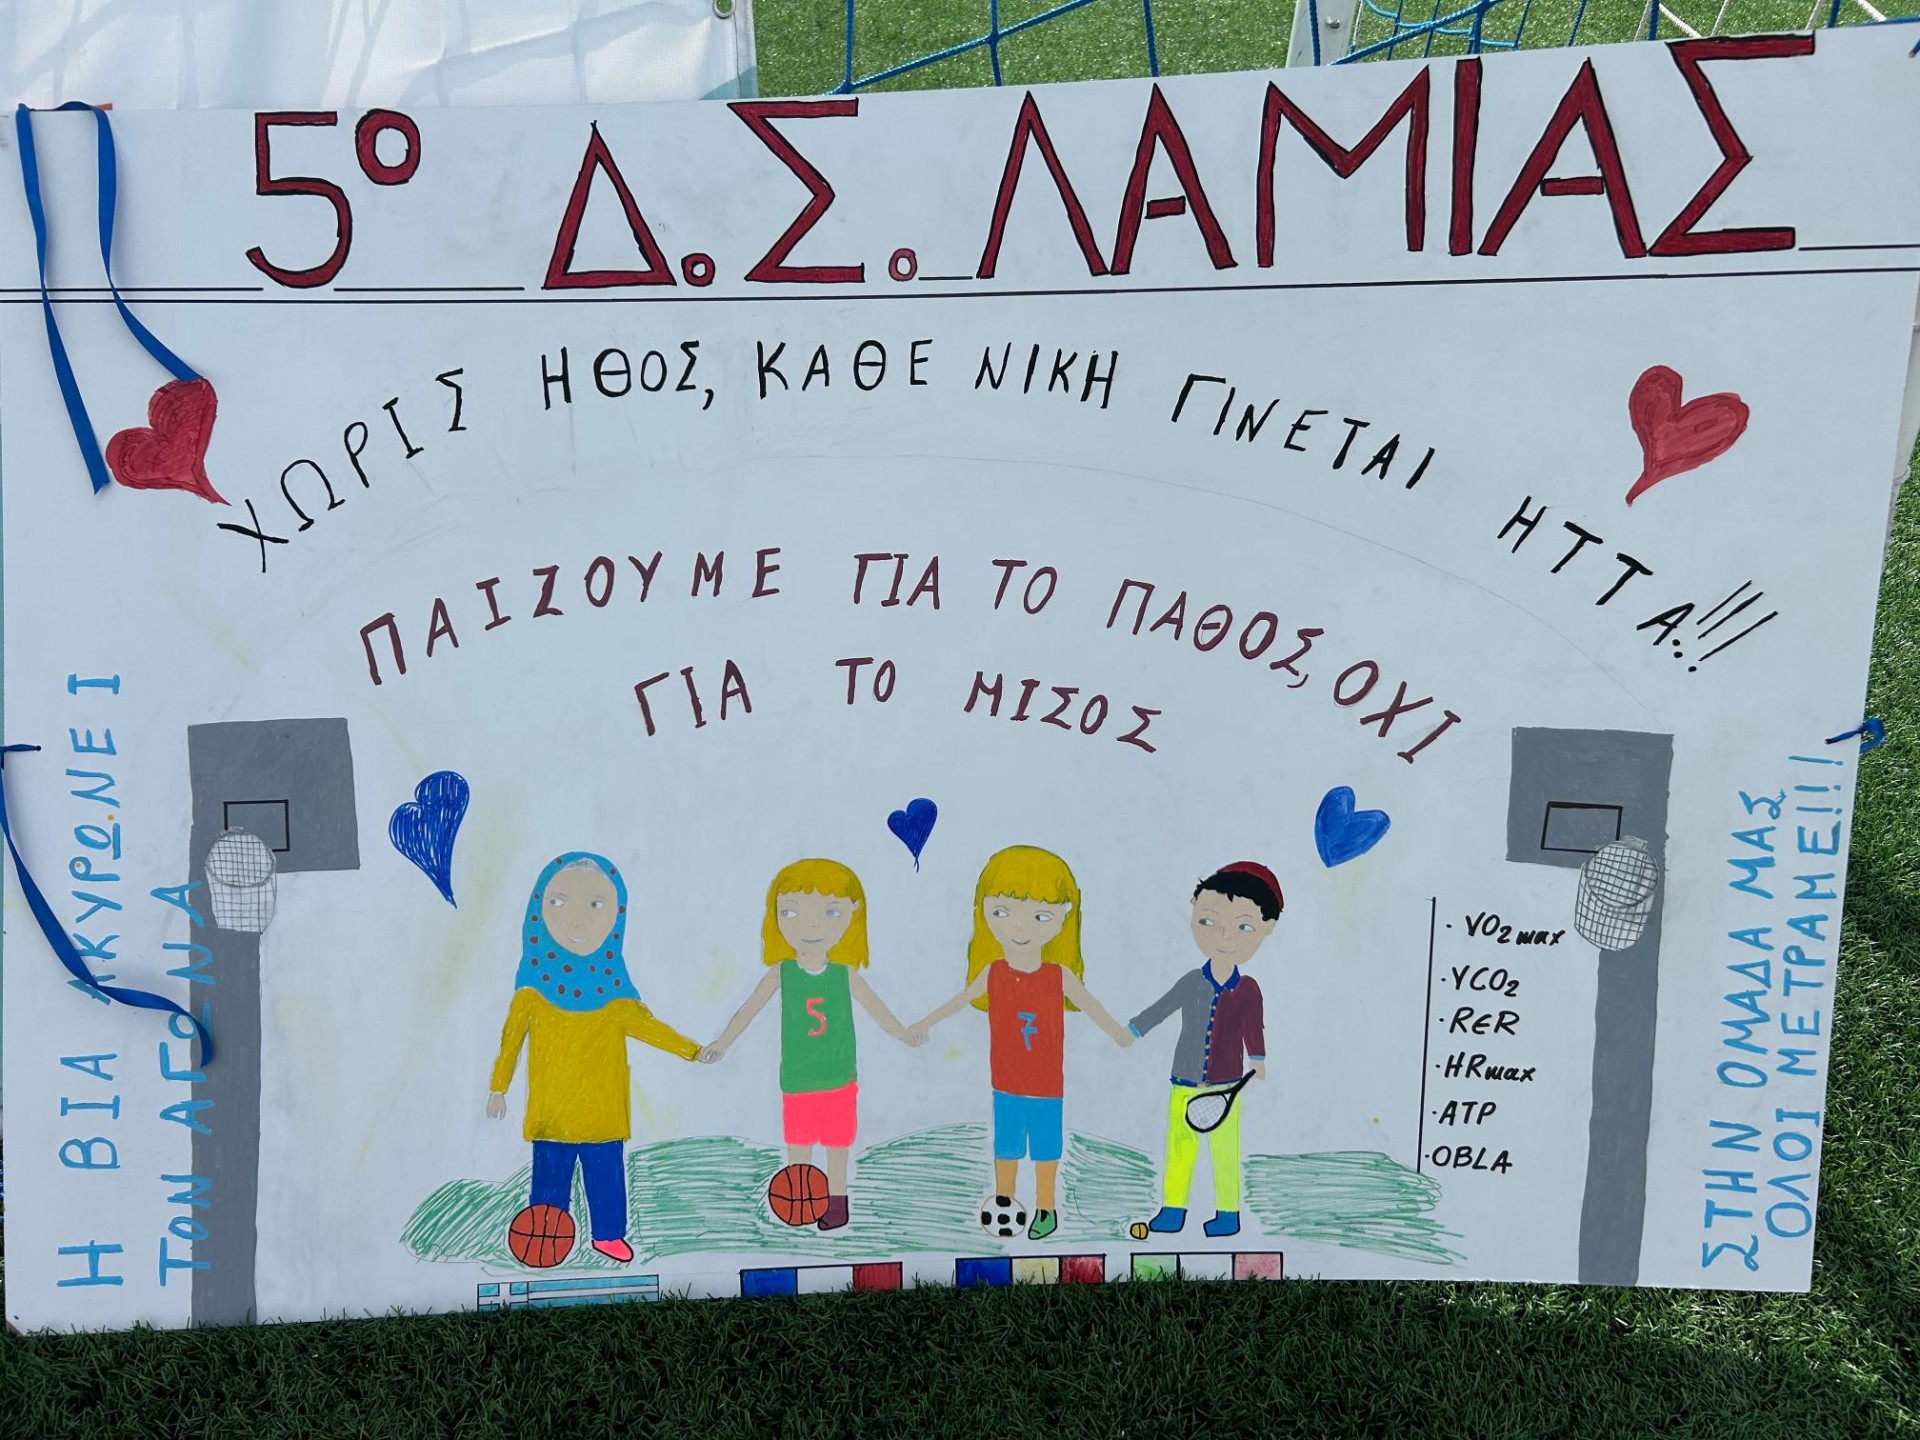 5º Δ.Σ. ΛΑΜΙΑΣ
ΧΩΡΙΣ ΗΘΟΣ, ΚΑΘΕ ΝΙΚΗ ΓΙΝΕΤΑΙ ΗΤΤΑ!!!
ΠΑΙΖΟΥΜΕ ΓΙΑ ΤΟ ΠΑΘΟΣ, ΟΧΙ
ΓΙΑ ΤΟ ΜΙΣΟΣ
Η ΒΙΑ ΑΚΥΡΩΝΕΙ
ΤΟΝ ΑΓΩΝΑ
5
7
· VO2max
· VCO2
· RER
· HRmax
· ATP
· OBLA
ΣΤΗΝ ΟΜΑΔΑ ΜΑΣ
ΟΛΟΙ ΜΕΤΡΑΜΕ!!!